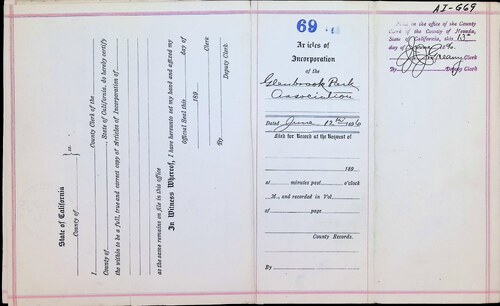 AI-669
State of California
County of
ss.
I
County Clerk of the
County of , State of California, do hereby certify
the within to be a full, true and correct copy of Articles of Incorporation of
as the same remains on file in this office
In Witness Whereof, I have hereunto set my hand and affixed my
official Seal this day of
189
Clerk
By Deputy Clerk
69
Articles of
Incorporation
of the
Glenbrook Park
Association
Dated June 13th 1896
Filed for Record at the Request of
189
at minutes past o'clock
M., and recorded in Vol
of page
County Records.
By
Filed in the office of the County
Clerk of the County of Nevada,
State of California, this 13th
day of June 1896.
Clerk
By Deputy Clerk